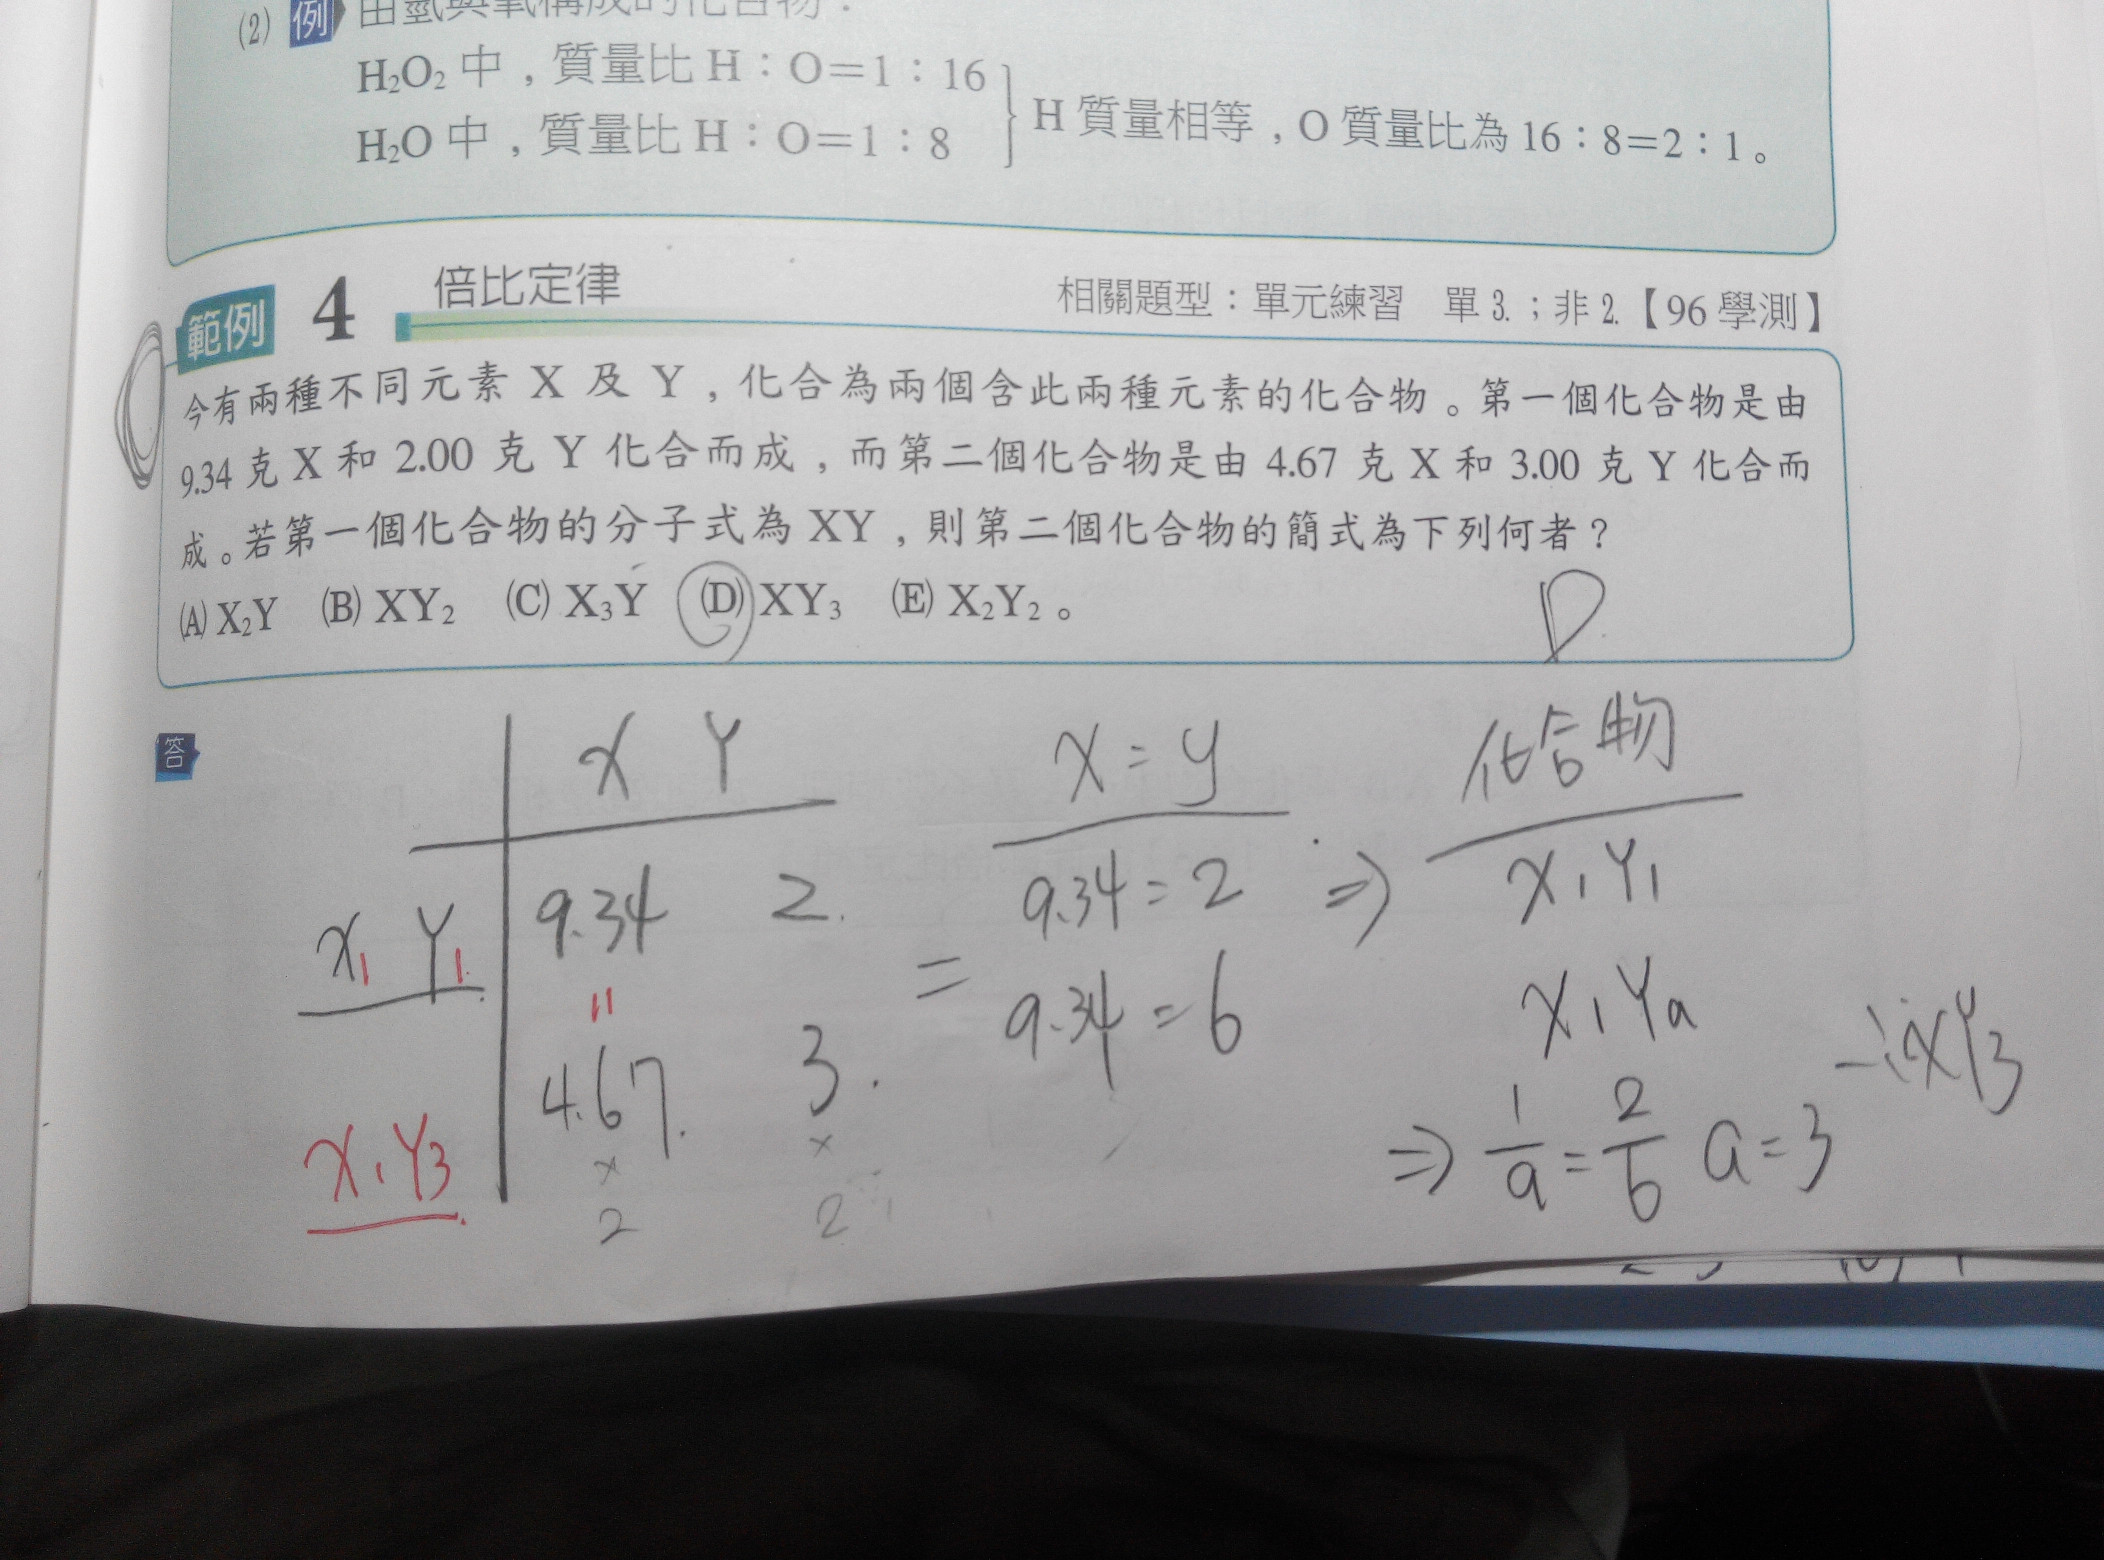 (2) 例 由氫與氧構成的化合物：
H₂O₂ 中，質量比 H：O＝1：16
H₂O 中，質量比 H：O＝1：8
H 質量相等，O 質量比為 16：8＝2：1。
範例 4 倍比定律 相關題型：單元練習 單 3.；非 2.【96 學測】
今有兩種不同元素 X 及 Y，化合為兩個含此兩種元素的化合物。第一個化合物是由
9.34 克 X 和 2.00 克 Y 化合而成，而第二個化合物是由 4.67 克 X 和 3.00 克 Y 化合而
成。若第一個化合物的分子式為 XY，則第二個化合物的簡式為下列何者？
(A) X₂Y (B) XY₂ (C) X₃Y (D) XY₃ (E) X₂Y₂。
D
答
X Y X = y 化合物
X₁ Y₁ 9.34 2. 9.34 = 2 ⇒ X₁Y₁
= 9.34 = 6 X₁Ya
X₁Y₃ 4.67. 3.
× ×
2 2
⇒ 1/a = 2/6 a = 3 ∴ XY₃